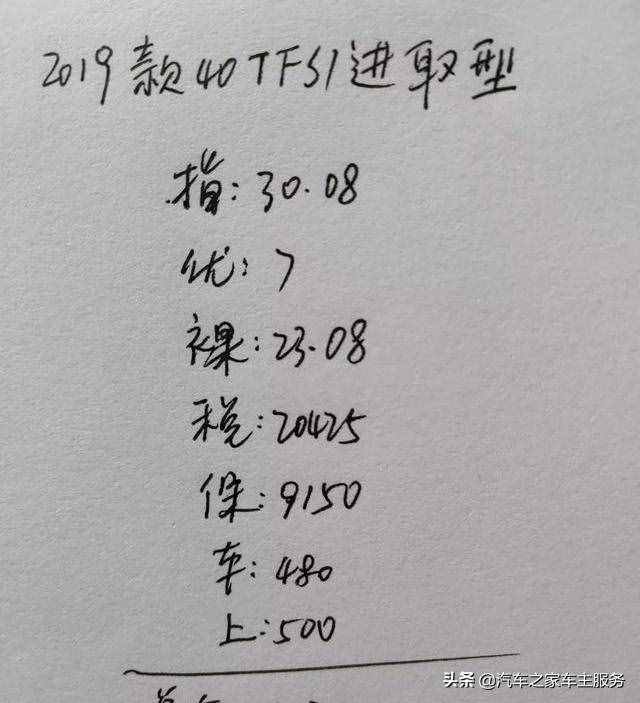 2019款40TFSI进取型
指:30.08
优:7
裸:23.08
税:20425
保:9150
车:480
上:500
头条 @汽车之家车主服务